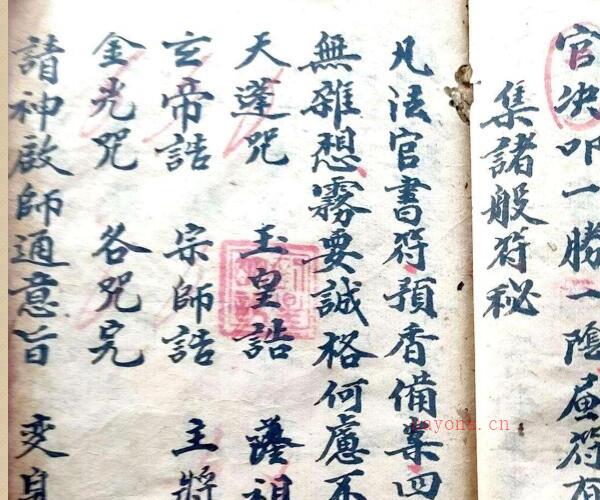 官决叩一勝一陰
集諸般符秘
凡法官書符預香備案四
無雜想霧要誠格何慮不
天蓬咒 玉皇誥 祖
玄帝誥 宗師誥 主將
金光咒 各咒完
請神啟師通意旨 变身